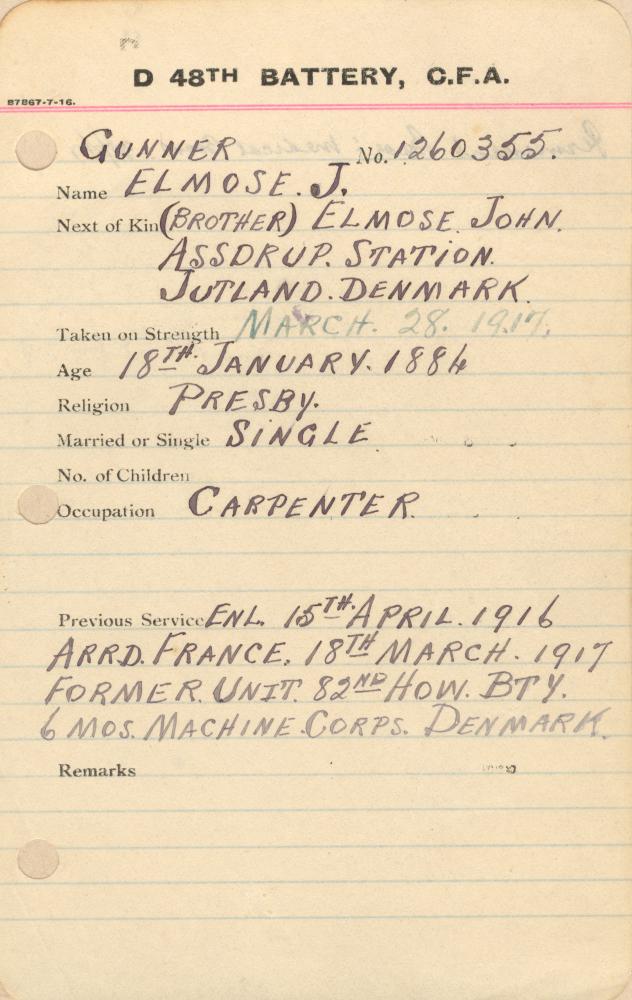 D 48TH BATTERY, C.F.A.
87867-7-16.
GUNNER No. 1260355.
Name ELMOSE. J.
Next of Kin (BROTHER) ELMOSE. JOHN.
ASSDRUP. STATION.
JUTLAND. DENMARK.
Taken on Strength MARCH. 28. 1917.
Age 18TH. JANUARY. 1884
Religion PRESBY.
Married or Single SINGLE
No. of Children
Occupation CARPENTER.
Previous Service ENL. 15TH. APRIL. 1916
ARRD. FRANCE. 18TH MARCH. 1917
FORMER. UNIT. 82ND HOW. BTY.
6 MOS. MACHINE. CORPS. DENMARK.
Remarks